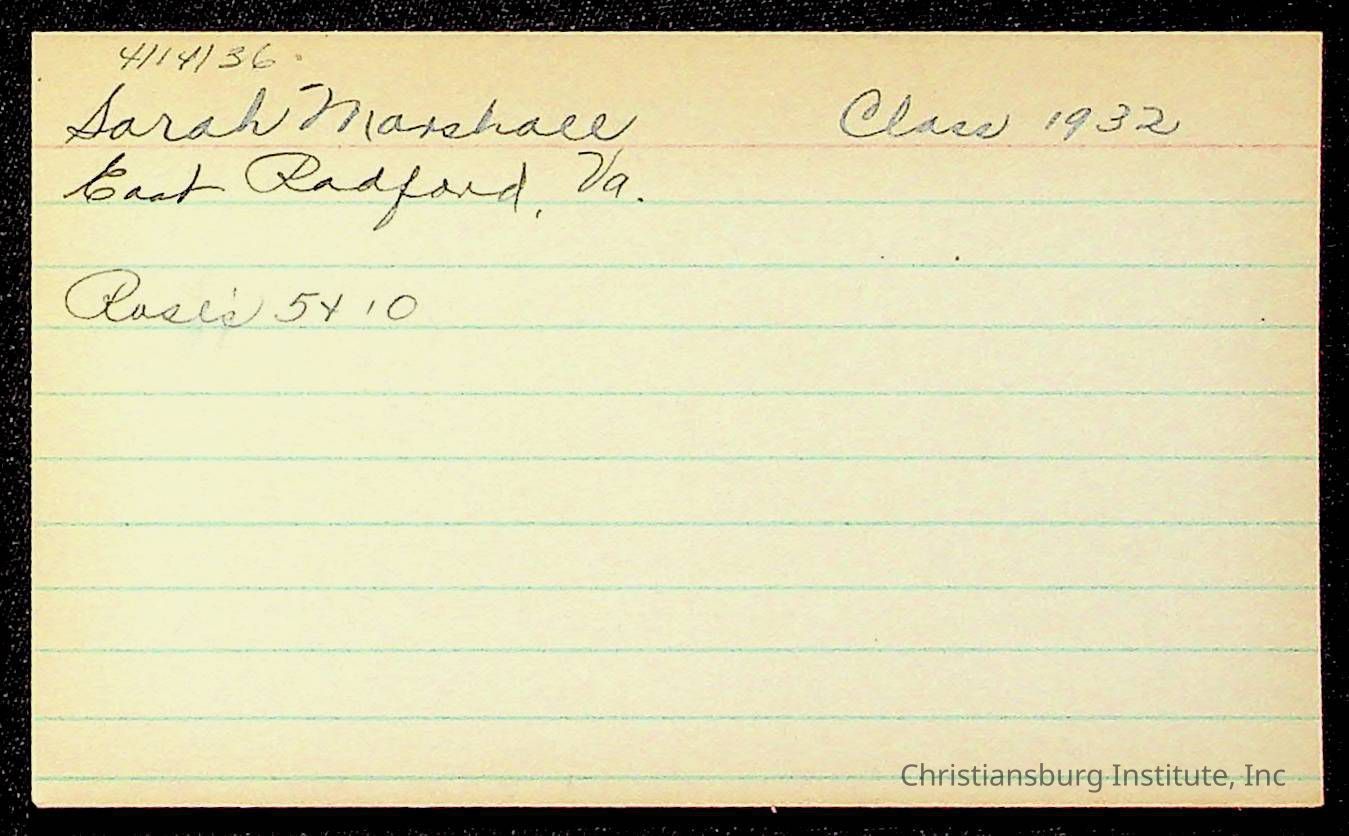 4/14/36
Sarah Marshall Class 1932
East Radford, Va.
Rose's 5 & 10
Christiansburg Institute, Inc